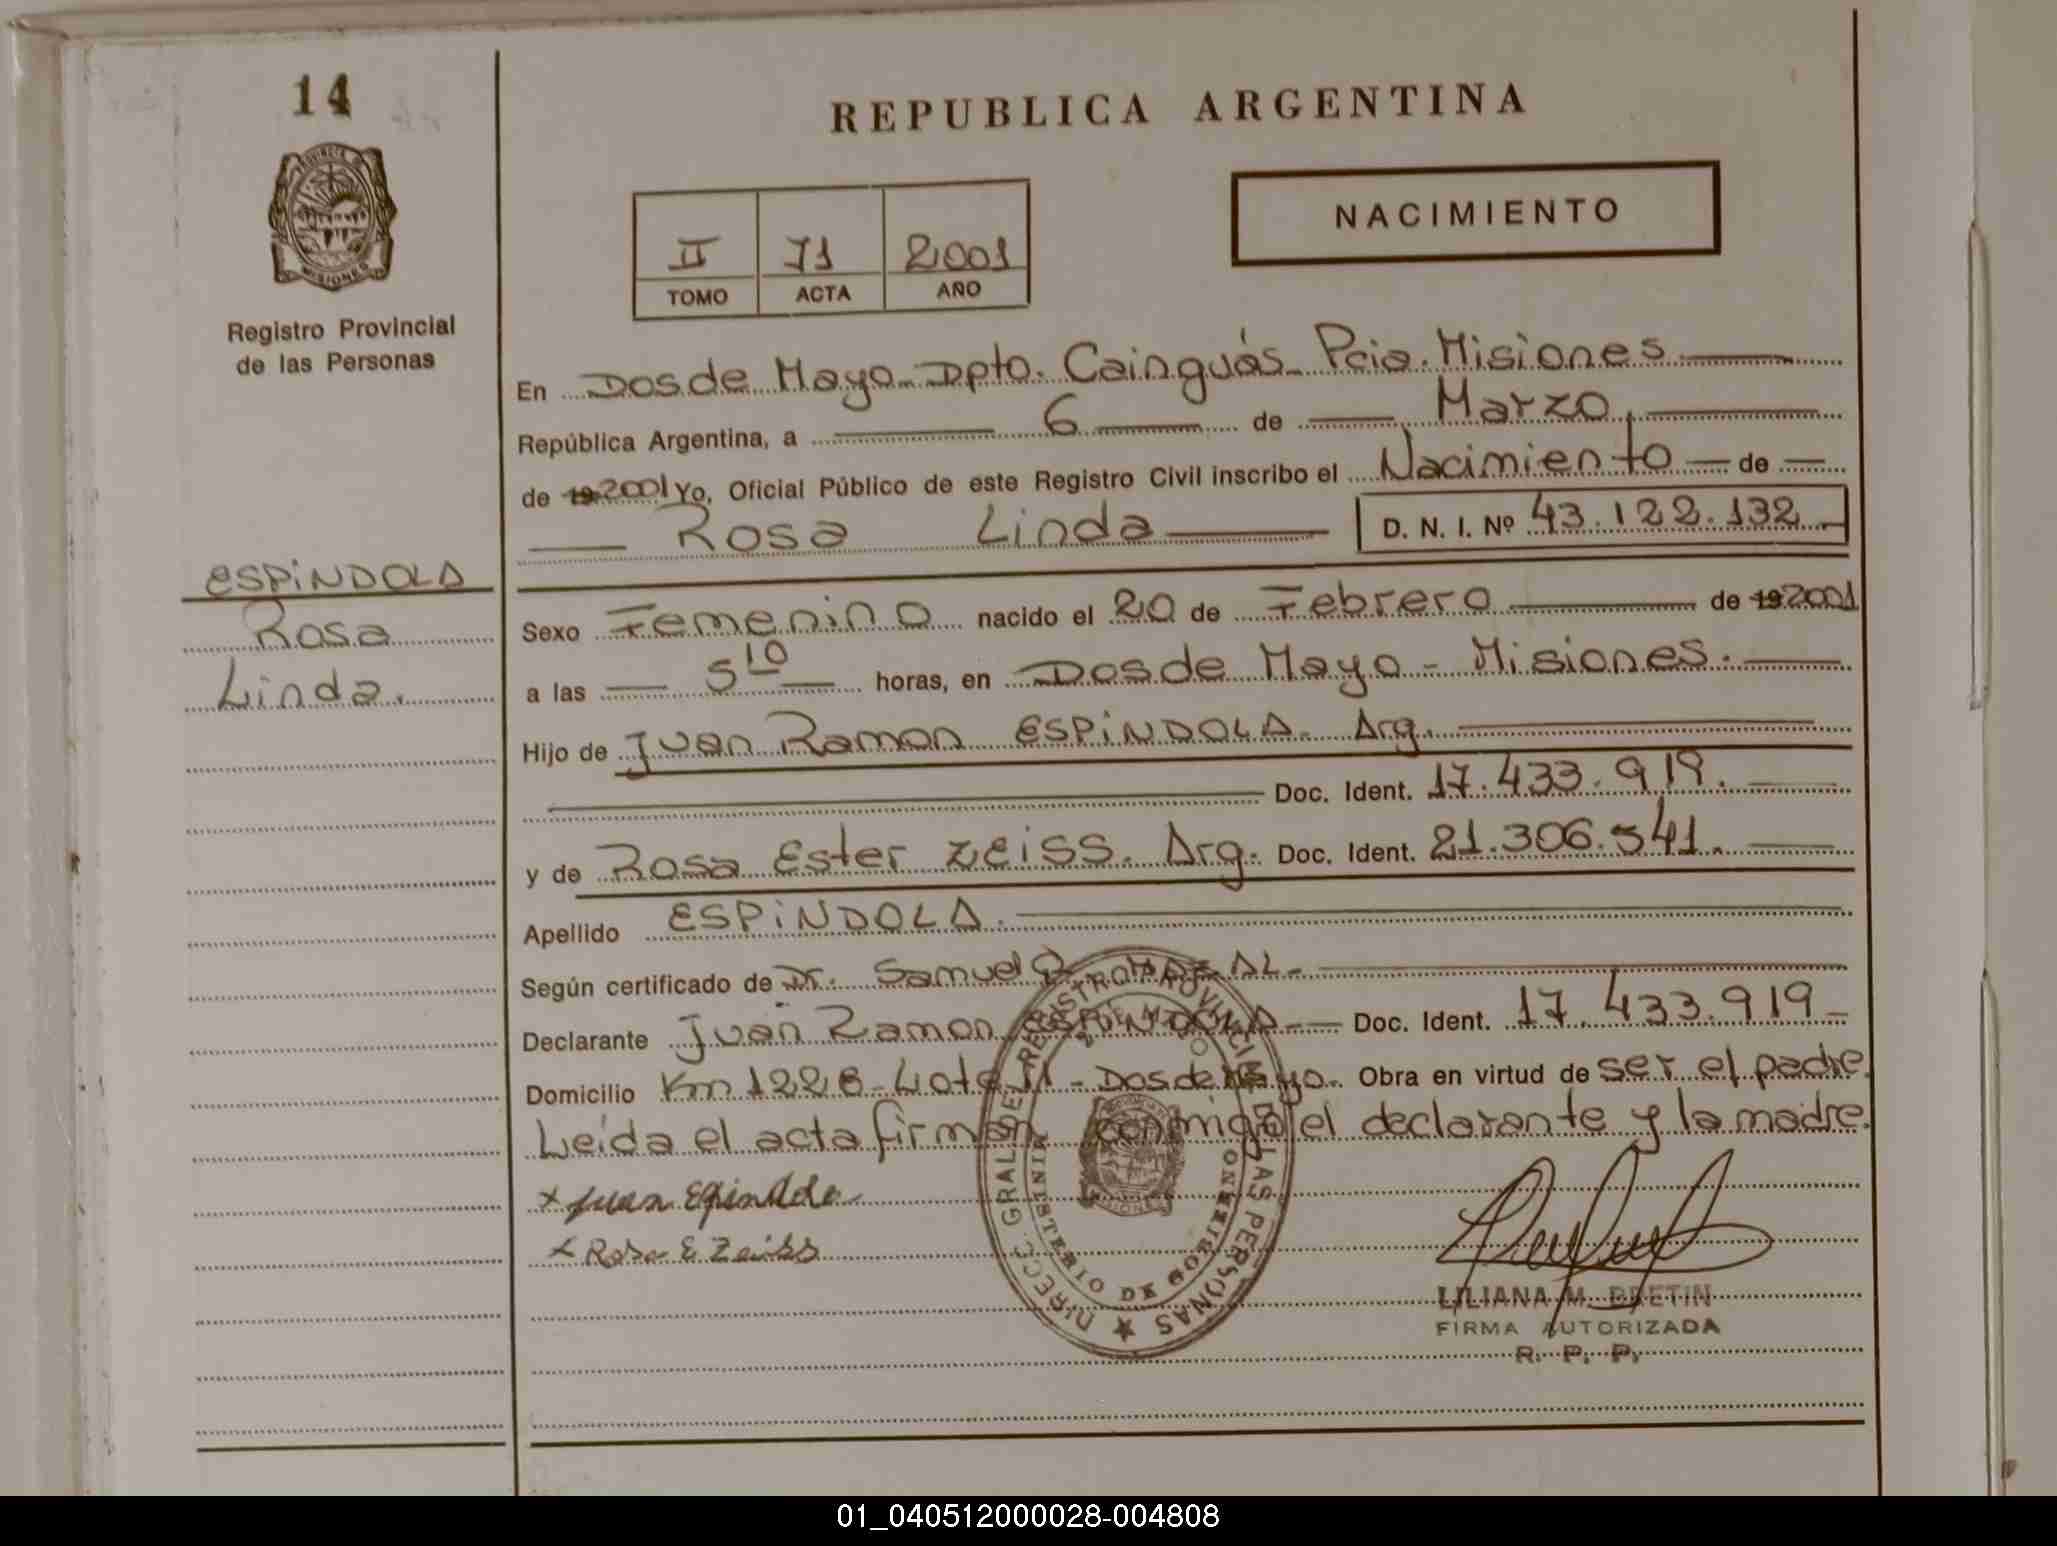 14
PROVINCIA DE
MISIONES
Registro Provincial
de las Personas
ESPINDOLA
Rosa
Linda.
REPUBLICA ARGENTINA
NACIMIENTO
II 71 2001
TOMO ACTA AÑO
En Dos de Mayo - Dpto. Cainguás - Pcia. Misiones
República Argentina, a 6 de Marzo
de 19 2001 Yo, Oficial Público de este Registro Civil inscribo el Nacimiento de
Rosa Linda D. N. I. Nº 43.122.132
Sexo Femenino nacido el 20 de Febrero de 19 2001
a las 5 10 horas, en Dos de Mayo - Misiones.
Hijo de Juan Ramon ESPINDOLA - Arg.
Doc. Ident. 17.433.919.
y de Rosa Ester Zeiss. Arg. Doc. Ident. 21.306.541.
Apellido ESPINDOLA.
Según certificado de Dr. Samuel
Declarante Juan Ramon ESPINDOLA - Doc. Ident. 17.433.919
Domicilio Km 1226 - Lote 11 - Dos de Mayo. Obra en virtud de ser el padre.
Leída el acta firman conmigo el declarante y la madre.
x Juan Espindola
x Rosa E Zeiss
DIRECC. GRAL. DEL REGISTRO PROVINCIAL DE LAS PERSONAS
MINISTERIO DE GOBIERNO
MISIONES
LILIANA M. BRETIN
FIRMA AUTORIZADA
R. P. P.
01_040512000028-004808